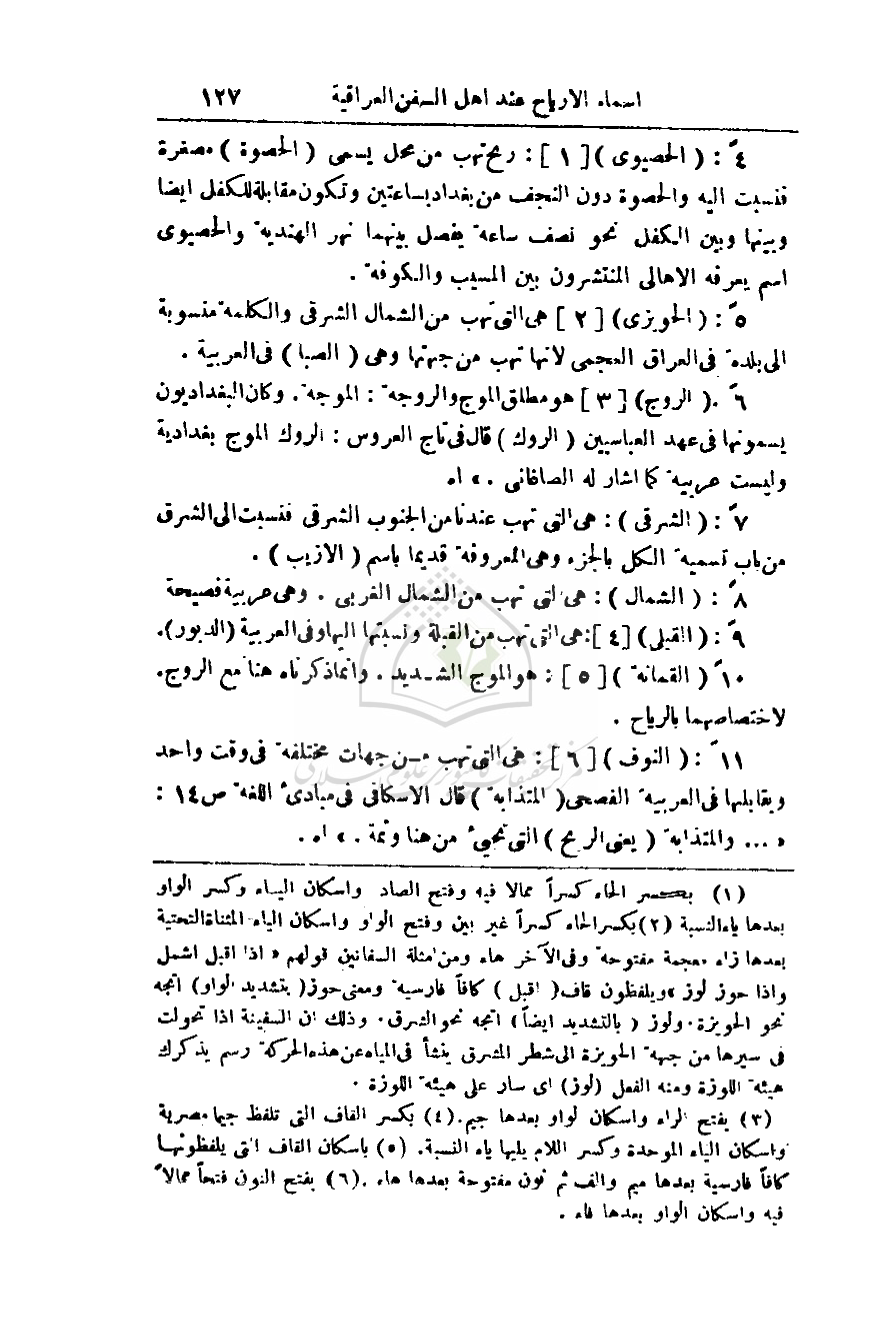 اسماء الارياح عند اهل السفن العراقية ١٢٧
٤ً : ( الحصيوى ) [ ١ ] : ريح تهب من محل يسمى ( الحصوة ) مصغرة
فنسبت اليه والحصوة دون النجف من بغداد بساعتين وتكون مقابلة للكفل ايضا
وبينها وبين الكفل نحو نصف ساعة يفصل بينهما نهر الهندية والحصيوى
اسم يعرفه الاهالى المنتشرون بين المسيب والكوفة .
٥ً : ( الحويزى ) [ ٢ ] هى التى تهب من الشمال الشرقى والكلمة منسوبة
الى بلدة فى العراق العجمى لانها تهب من جهتها وهى ( الصبا ) فى العربية .
٦ً . ( الروج ) [ ٣ ] هو مطلق الموج والروجة : الموجة . وكان البغداديون
يسمونها فى عهد العباسيين ( الروك ) قال فى تاج العروس : الروك الموج بغدادية
وليست عربية كما اشار له الصاغانى . » اه
٧ً : ( الشرقى ) : هى التى تهب عندنا من الجنوب الشرقى فنسبت الى الشرق
من باب تسمية الكل بالجزء وهى المعروفة قديما باسم ( الازيب ) .
٨ً : ( الشمال ) : هى التى تهب من الشمال الغربى . وهى عربية فصيحة
٩ً : ( القبلى ) [ ٤ ] : هى التى تهب من القبلة ونسبتها اليها وفى العربية ( الدبور ) .
١٠ً ( القمانة ) [ ٥ ] : هو الموج الشـديد . وانما ذكرناه هنا مع الروج .
لاختصاصهما بالرياح .
١١ً : ( النوف ) [ ٦ ] : هى التى تهب مـن جهات مختلفة فى وقت واحد
ويقابلها فى العربية الفصحى ( المتذابة ) قال الاسكافى فى مبادئ اللغة ص ١٤ :
« ... والمتذابة ( يعنى الريح ) التى تجيئ من هنا وثمة . » اه .
(١) بكسر الحاء كسراً ممالا فيه وفتح الصاد واسكان اليـاء وكسر الواو
بعدها ياء النسبة (٢) بكسر الحاء كسراً غير بين وفتح الواو واسكان الياء المثناة التحتية
بعدها زاء معجمة مفتوحة وفى الآخر هاء ومن امثلة السفانين قولهم « اذا اقبل اشمل
واذا حوز لوز » ويلفظون قاف ( اقبل ) كافاً فارسية ومعنى حوز ( بتشديد الواو ) اتجه
نحو الحويزة . ولوز ( بالتشديد ايضاً ) اتجه نحو الشرق . وذلك ان السفينة اذا تحولت
فى سيرها من جهة الحويزة الى شطر المشرق ينشأ فى المياه عن هذه الحركة رسم يذكرك
هيئة اللوزة ومنه الفعل (لوز) اى سار على هيئة اللوزة .
(٣) بفتح الراء واسكان لواو بعدها جيم . (٤) بكسر القاف التى تلفظ جيما مصرية
واسكان الياء الموحدة وكسر اللام يليها ياء النسبة . (٥) باسكان القاف التى يلفظونهـا
كافاً فارسية بعدها ميم والف ثم نون مفتوحة بعدها هاء . (٦) بفتح النون فتحاً ممالاً
فيه واسكان الواو بعدها فاء .